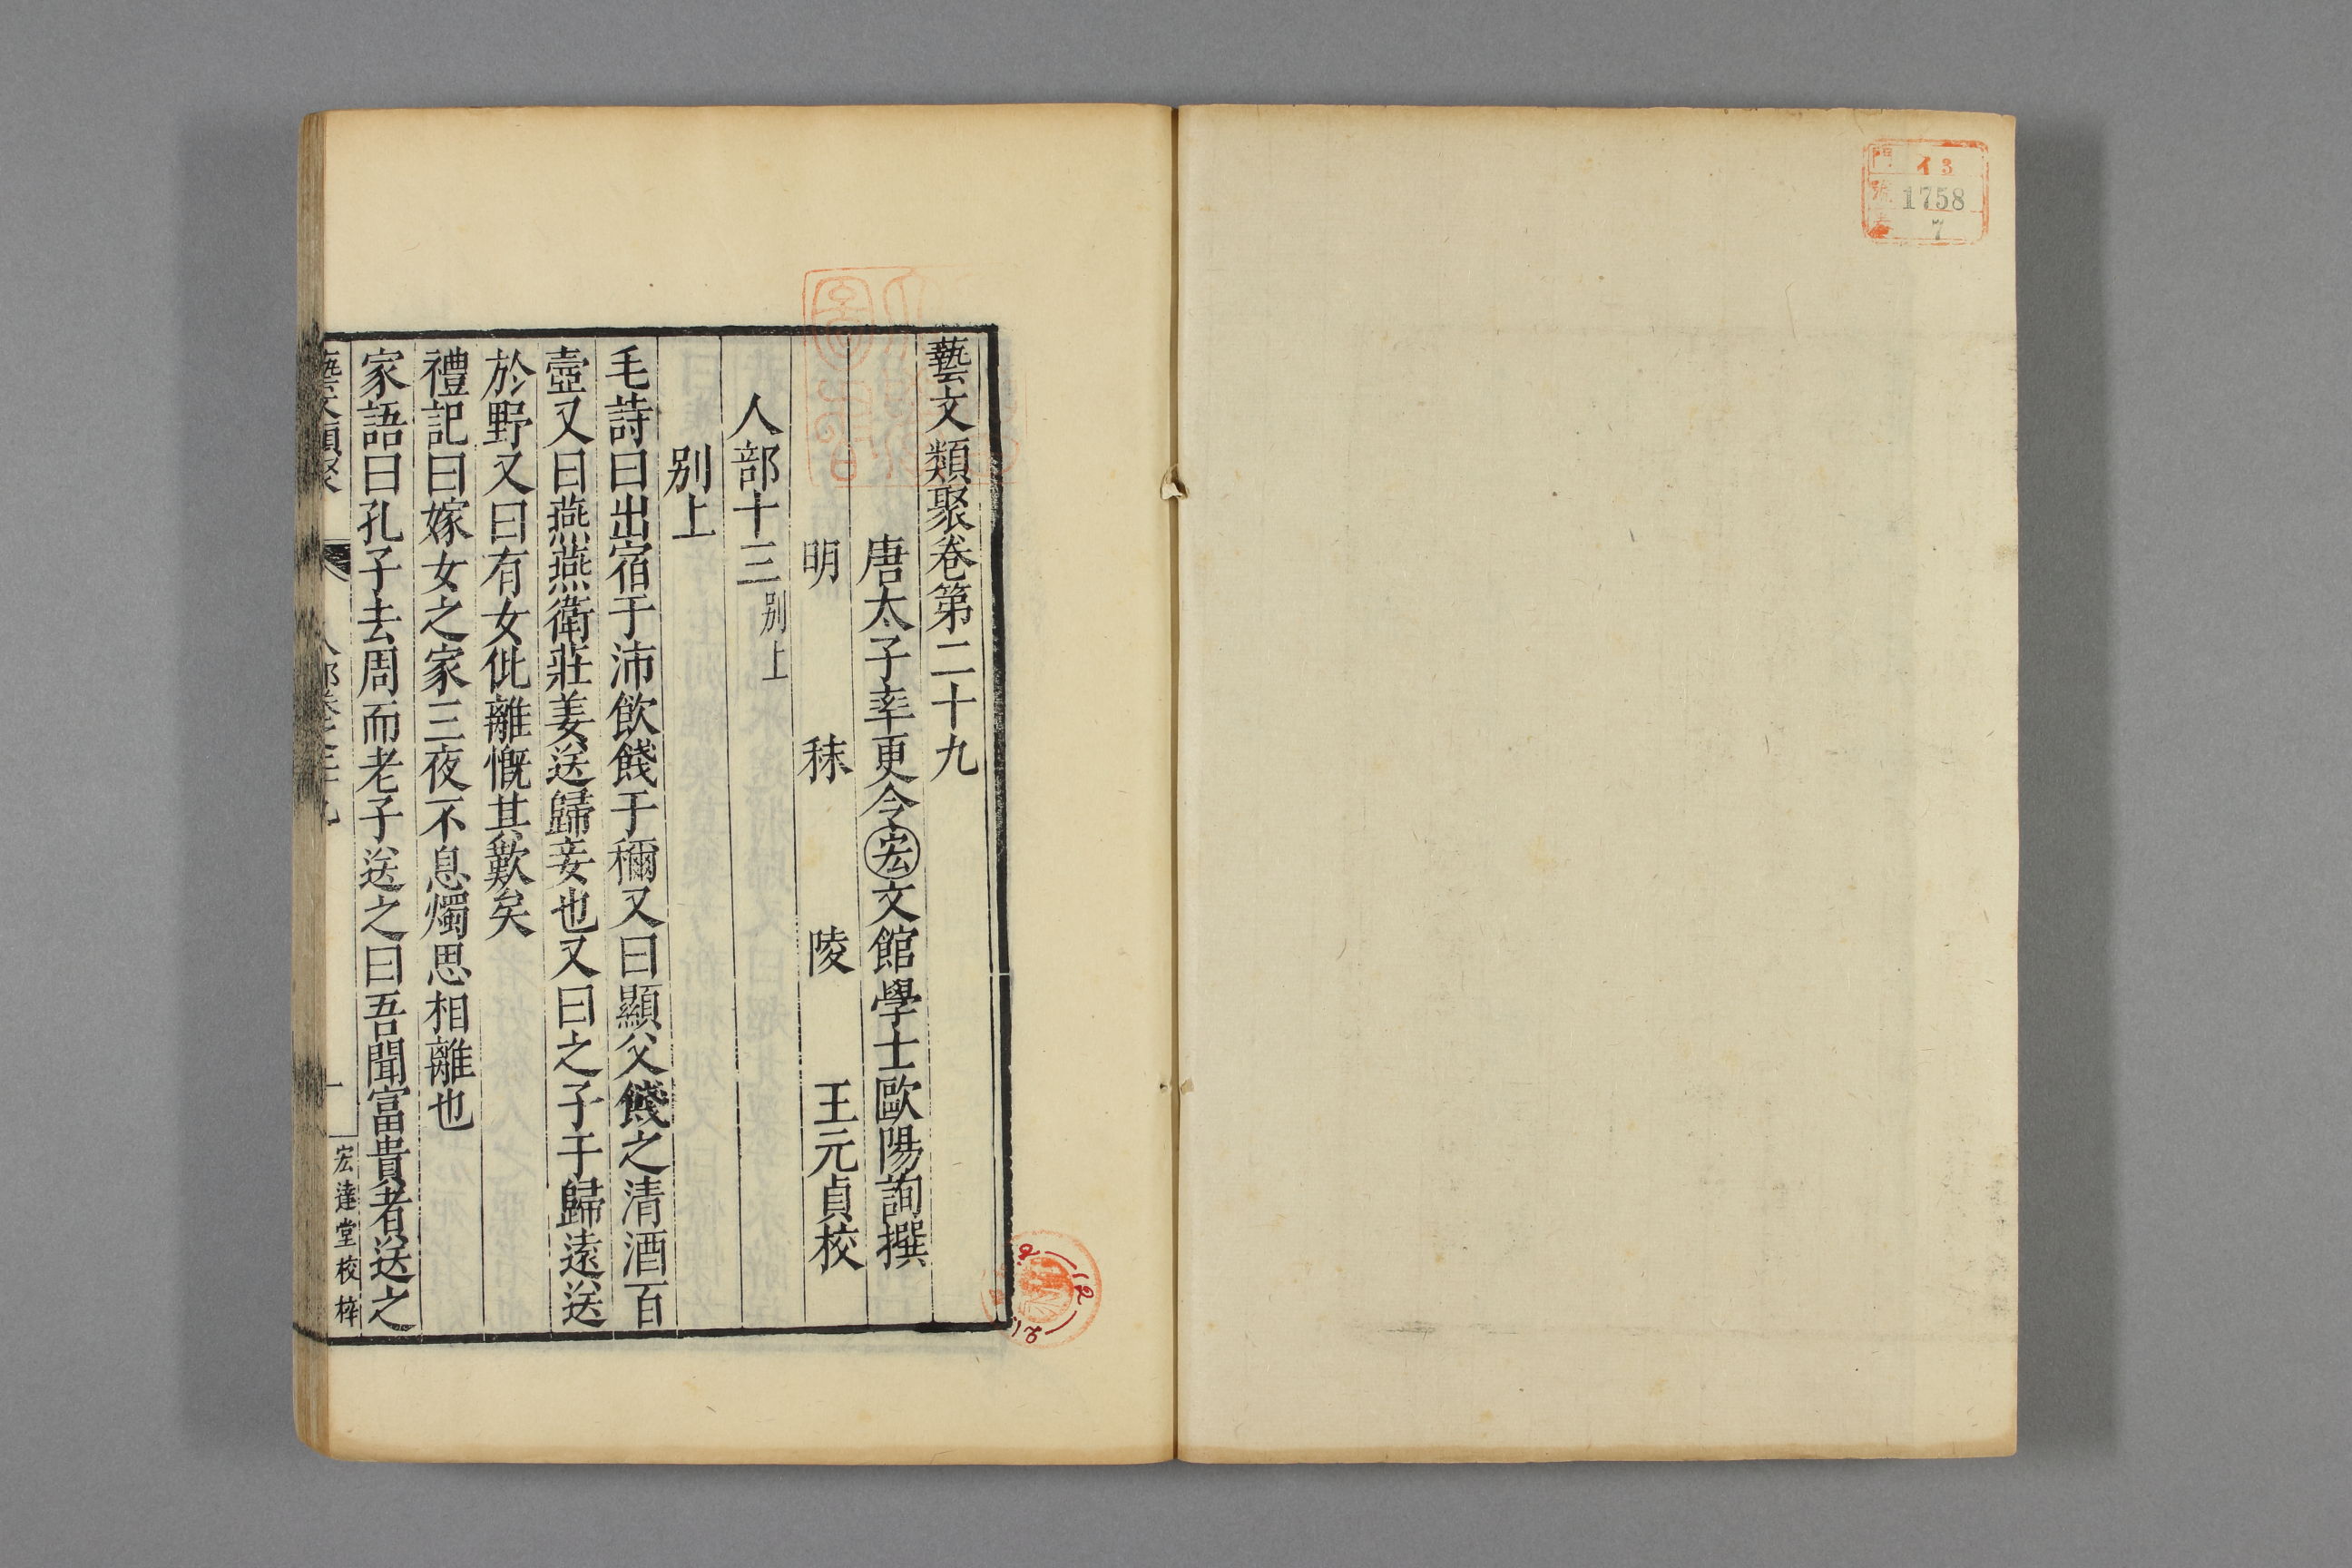 門 イ3
號 1758
7
藝文類聚卷第二十九
唐太子率更令宏文館學士歐陽詢撰
明 秣 陵 王元貞校
人部十三别上
别上
毛詩曰出宿于沛飲餞于禰又曰顯父餞之清酒百
壺又曰燕燕衛莊姜送歸妾也又曰之子于歸遠送
於野又曰有女仳離慨其歎矣
禮記曰嫁女之家三夜不息燭思相離也
家語曰孔子去周而老子送之曰吾聞富貴者送之
藝文類聚 人部卷之二十九 一 宏達堂校梓